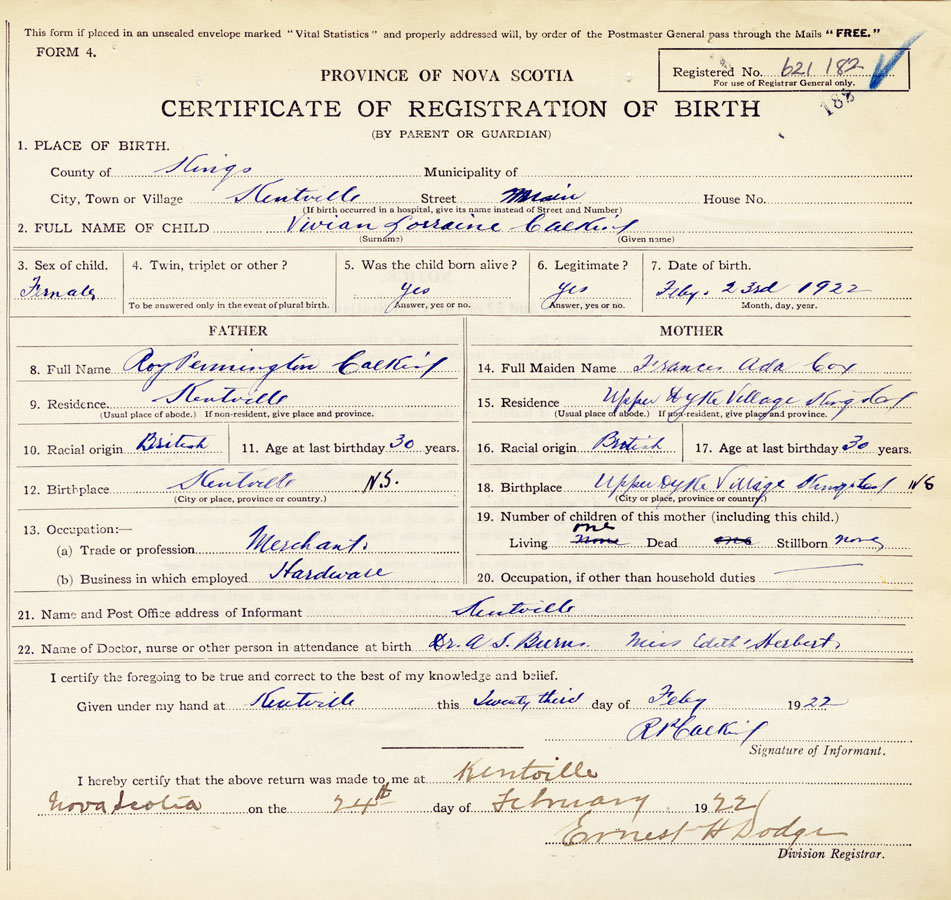 This form if placed in an unsealed envelope marked "Vital Statistics" and properly addressed will, by order of the Postmaster General pass through the Mails "FREE."
FORM 4.
Registered No. 621 182
For use of Registrar General only.
188
PROVINCE OF NOVA SCOTIA
CERTIFICATE OF REGISTRATION OF BIRTH
(BY PARENT OR GUARDIAN)
1. PLACE OF BIRTH.
County of Kings Municipality of
City, Town or Village Kentville Street Main House No.
(If birth occurred in a hospital, give its name instead of Street and Number)
2. FULL NAME OF CHILD Vivian Lorraine Calkin
(Surname) (Given name)
3. Sex of child. 4. Twin, triplet or other? 5. Was the child born alive? 6. Legitimate? 7. Date of birth.
Female yes yes Feby. 23rd 1922
To be answered only in the event of plural birth. Answer, yes or no. Answer, yes or no. Month, day, year.
FATHER MOTHER
8. Full Name Roy Pennington Calkin 14. Full Maiden Name Frances Ada Cox
9. Residence Kentville 15. Residence Upper Dyke Village Kings Co
(Usual place of abode.) If non-resident, give place and province. (Usual place of abode.) If non-resident, give place and province.
10. Racial origin British 11. Age at last birthday 30 years. 16. Racial origin British 17. Age at last birthday 30 years.
12. Birthplace Kentville N.S. 18. Birthplace Upper Dyke Village NS
(City or place, province or country.) (City or place, province or country.)
13. Occupation:— 19. Number of children of this mother (including this child.)
one
(a) Trade or profession Merchant. Living None Dead one Stillborn none
(b) Business in which employed Hardware 20. Occupation, if other than household duties
21. Name and Post Office address of Informant Kentville
22. Name of Doctor, nurse or other person in attendance at birth Dr. A S. Burns. Miss Edith Herbert.
I certify the foregoing to be true and correct to the best of my knowledge and belief.
Given under my hand at Kentville this Twenty third day of Feby 1922
R P Calkin
Signature of Informant.
I hereby certify that the above return was made to me at Kentville
Nova Scotia on the 24th day of February 1922
Ernest H Dodge
Division Registrar.